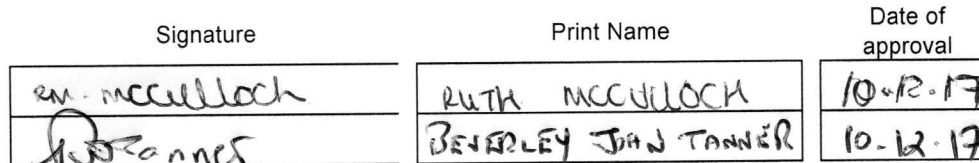 Signature Print Name Date of
approval
RM. MCCULLOCH RUTH MCCULLOCH 10.12.17
Tanner BEVERLEY JOAN TANNER 10.12.17